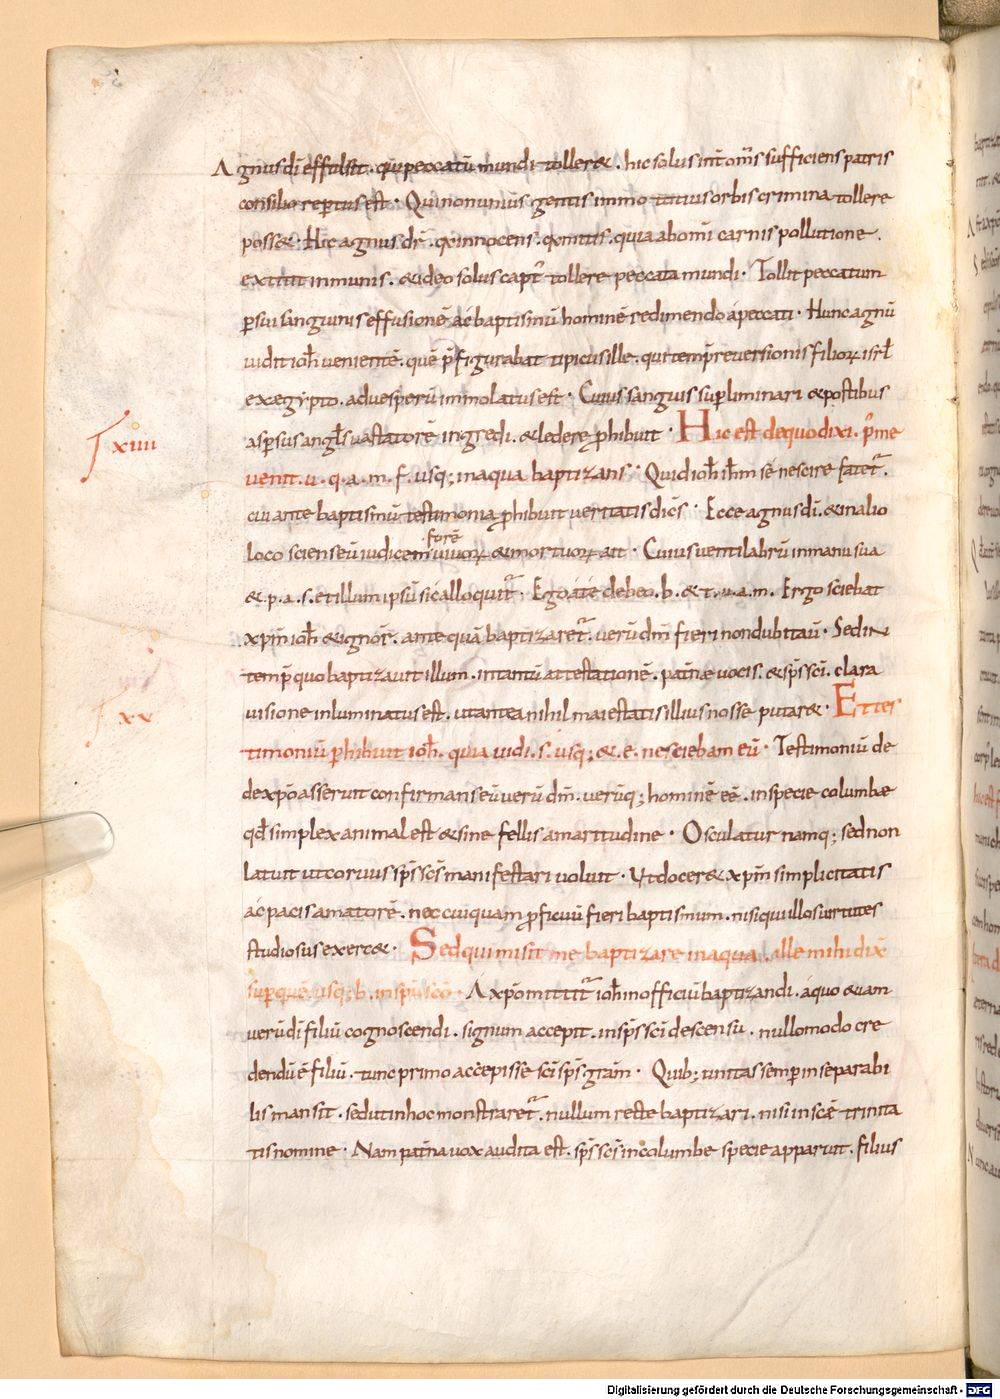 Agnus di effulsit. qui peccatū mundi toller&. hic solus int̄ om̄s sufficiens patris
consilio rep̄tus est. Qui non unius gentis immo totius orbis crimina tollere
poss&. Hic agnus dr̄. q̄ innocens. q̄ mitis. quia ab omī carnis pollutione.
extitit inmunis. &ideo solus capt̄ tollere peccata mundi. Tollit peccatum
p̄ sui sanguinis effusionē ac baptismū hominē redimendo a peccati. Hunc agnū
uidit ioh̄ venientē. quē p̄figurabat tipicus ille. qui temp̄re versionis filioꝝ isrl̄
ex egypto. ad uesperū immolatus est. Cuius sanguis sup̄liminari & postibus
asp̄sus angl̄s uastatorē ingredi. & ledere p̄hibuit. Hic est de quo dixi. p̄ me
uenit. u. q. a. m. f. usq; in aqua baptizans. Quid ioh̄ ih̄m sē nescire fatet̄.
cui ante baptismū testimonia p̄hibuit veritatis dic̄s. Ecce agnus di. & in alio
fore
loco sciens eū iudicem uiuoꝝ & mortuoꝝ ait. Cuius uentilabrū in manu sua
& p. a. s. et illum ipsū sic alloquit̄. Ego á té debeo. b. & t. u. a. m. Ergo sciebat
xp̄m ioh̄ & ignor̄. ante quā baptizaret̄. verū dm̄ fieri non dubitaū. Sed in
temp̄ quo baptizauit illum. in tantū attestationē. pat̄næ uocis. & sp̄s sci. clara
uisione inluminatus est. ut antea nihil maiestatis illius nosse putar&. Et tes
timoniū p̄hibuit ioh̄. quia uidi. s. usq; &. e. nesciebam eū. Testimoniū de
de xp̄o asseruit confirmans eū verū dm̄. verūq; hominē eē. in specie columbæ
qd̄ simplex animal est & sine fellis amaritudine. Osculatur namq; sed non
latuit ut coruus sp̄s sc̄s manifestari uoluit. Ut docer& xp̄m simplicitatis
ac pacis amatorē. nec cuiquam p̄ficuū fieri baptismum. nisi qui illos uirtutes
studiosus exerc&. Sed qui misit me baptizare in aqua. ille mihi dix̄
sup̄ quē. usq; b. in sp̄u sc̄o. A xp̄o mittit̄ ioh̄ in officiū baptizandi. a quo & iam
verū di filiū cognoscendi. signum accepit. in sp̄s sci descensu. nullo modo cre
dendū ē filiū. tunc primo accepisse sc̄i sp̄s grām. Quib; unitas semp̄ inseparabi
lis mansit. sed ut in hoc monstraret̄. nullum recte baptizari. nisi in scæ trinita
tis nomine. Nam pat̄na uox audita est. sp̄s sc̄s in columbe specie apparuit. filius
xiiii
xx
Digitalisierung gefördert durch die Deutsche Forschungsgemeinschaft - DFG